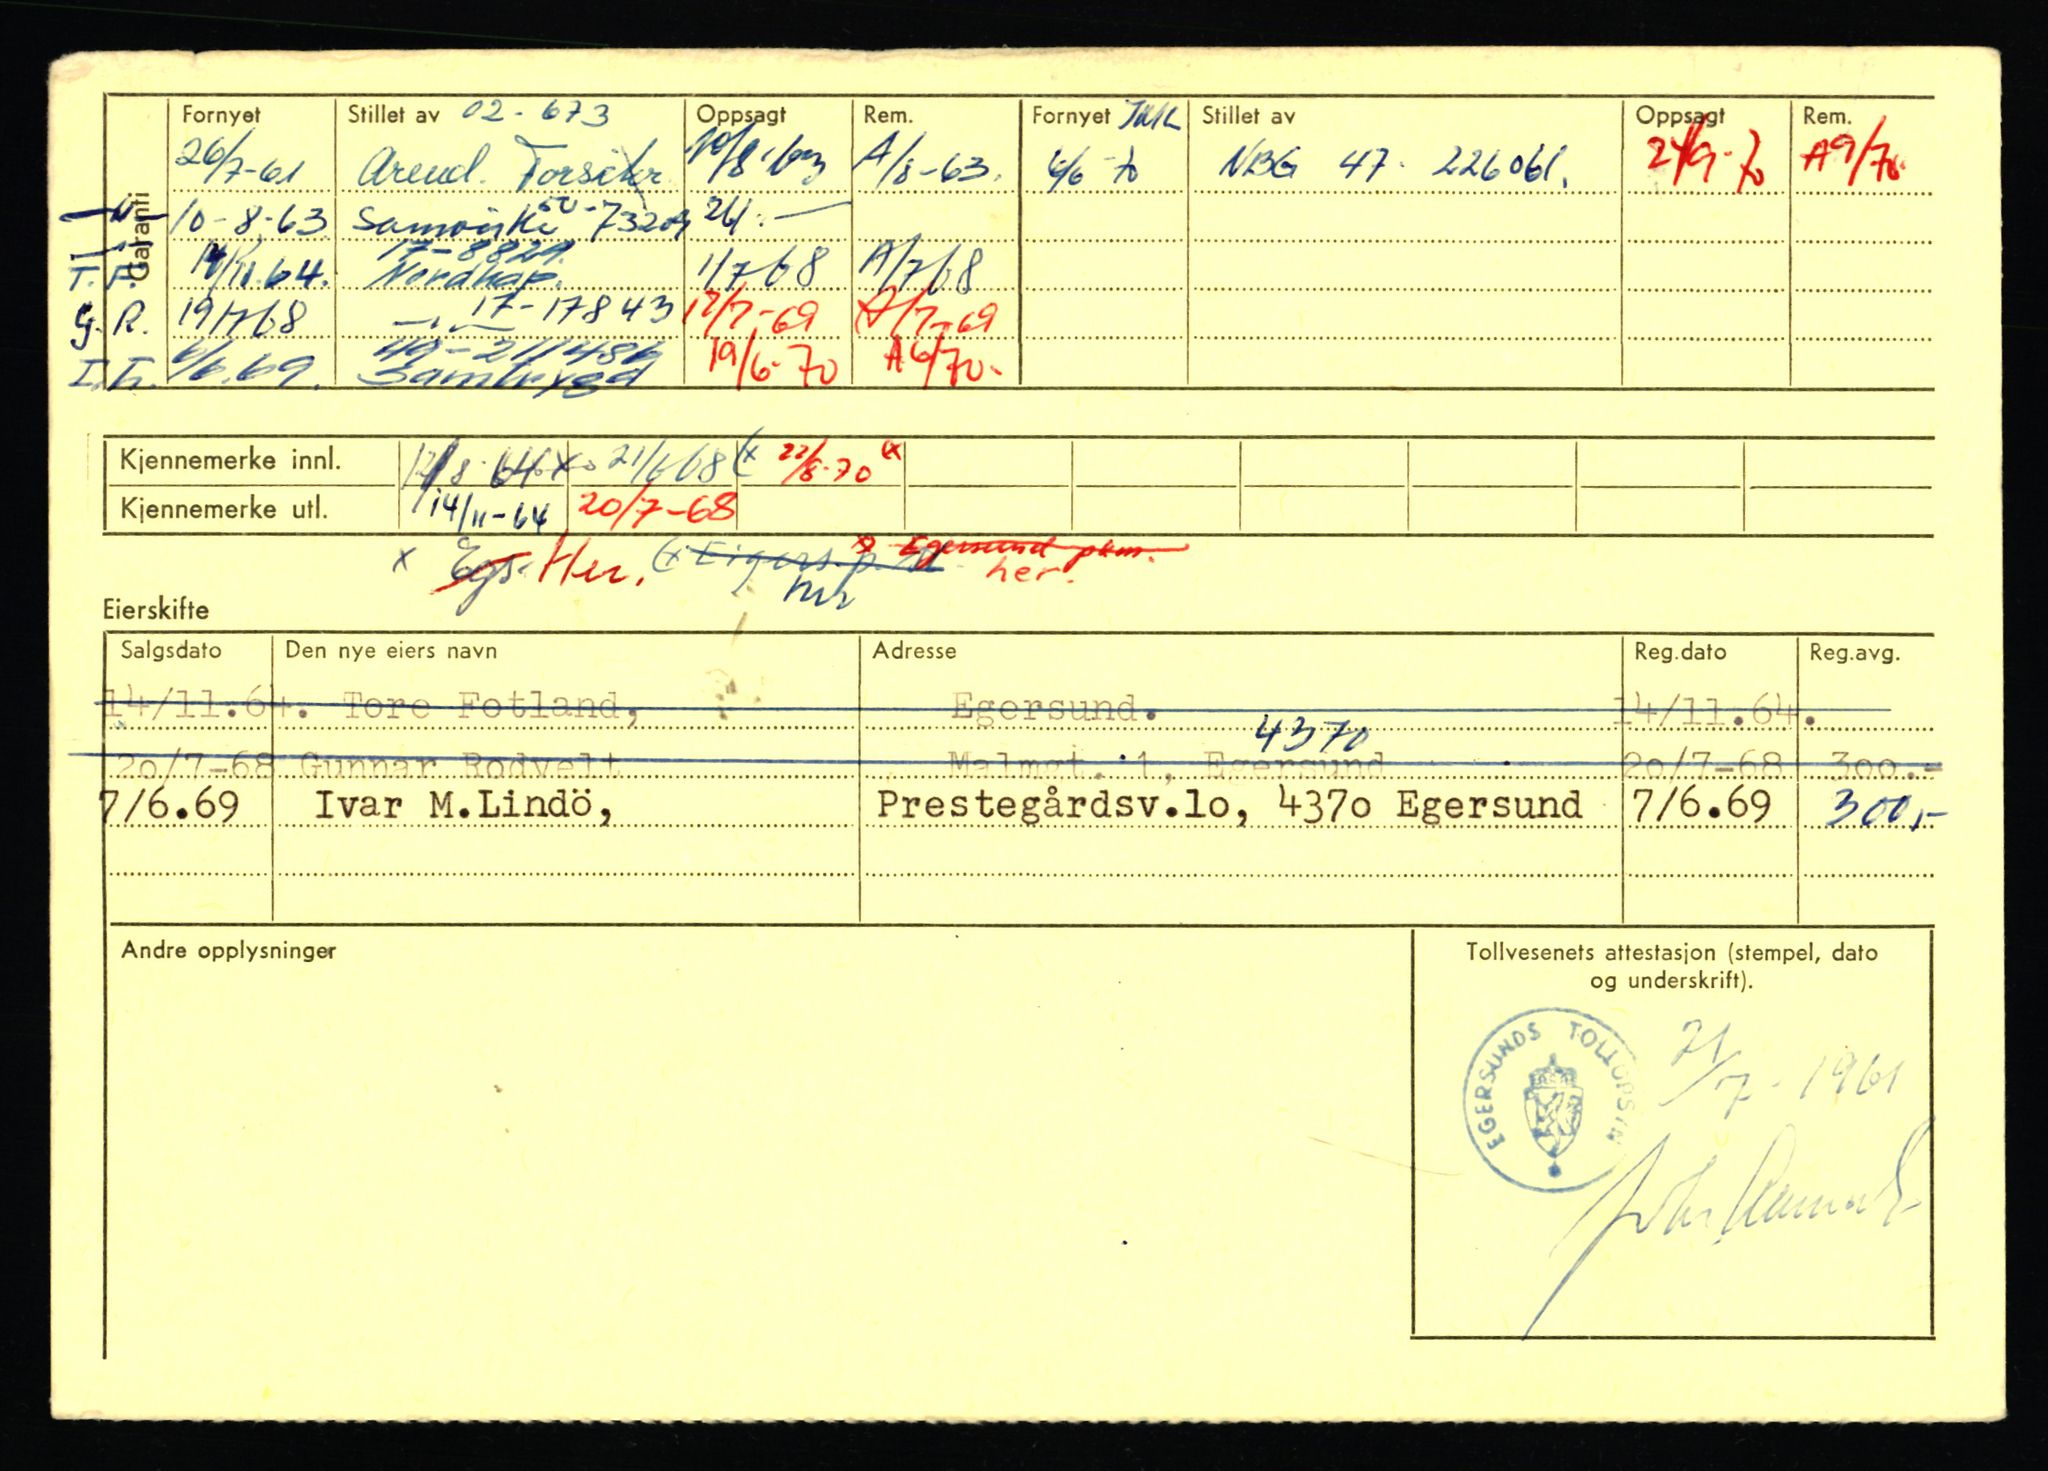 Garanti
Fornyet Stillet av 02-673 Oppsagt Rem. Fornyet Stillet av Oppsagt Rem.
26/7-61 Arend. Forsikr. A/8-63. 4/6-70 NBG 47. 226061. 24/9-70 A9/70.
10-8-63 50-73204
17-8829.
T. F. 14/11.64. Nordkap. 1/7 68 A/7 68
G. R. 19/7 68 17-17843 12/7-69 A/7-69
49-211486
6/6.69. Samtrygd 19/6-70 A6/70.
Kjennemerke innl. 12/8-64 x 21/6 68 (x 22/8-70 (x
Kjennemerke utl. 14/11-64 20/7-68
x Egs. Her. (x Eigers. p. x Egersund pkm.
her.
Eierskifte
Salgsdato Den nye eiers navn Adresse Reg.dato Reg.avg.
14/11.64. Tore Fotland, Egersund. 14/11.64.
4370
20/7-68 Gunnar Rodvelt Malmgt. 1, Egersund 20/7-68 300.-
7/6.69 Ivar M.Lindö, Prestegårdsv.10, 4370 Egersund 7/6.69 300,-
Andre opplysninger
Tollvesenets attestasjon (stempel, dato
og underskrift).
EGERSUNDS TOLLOPSYN
21/7-1961